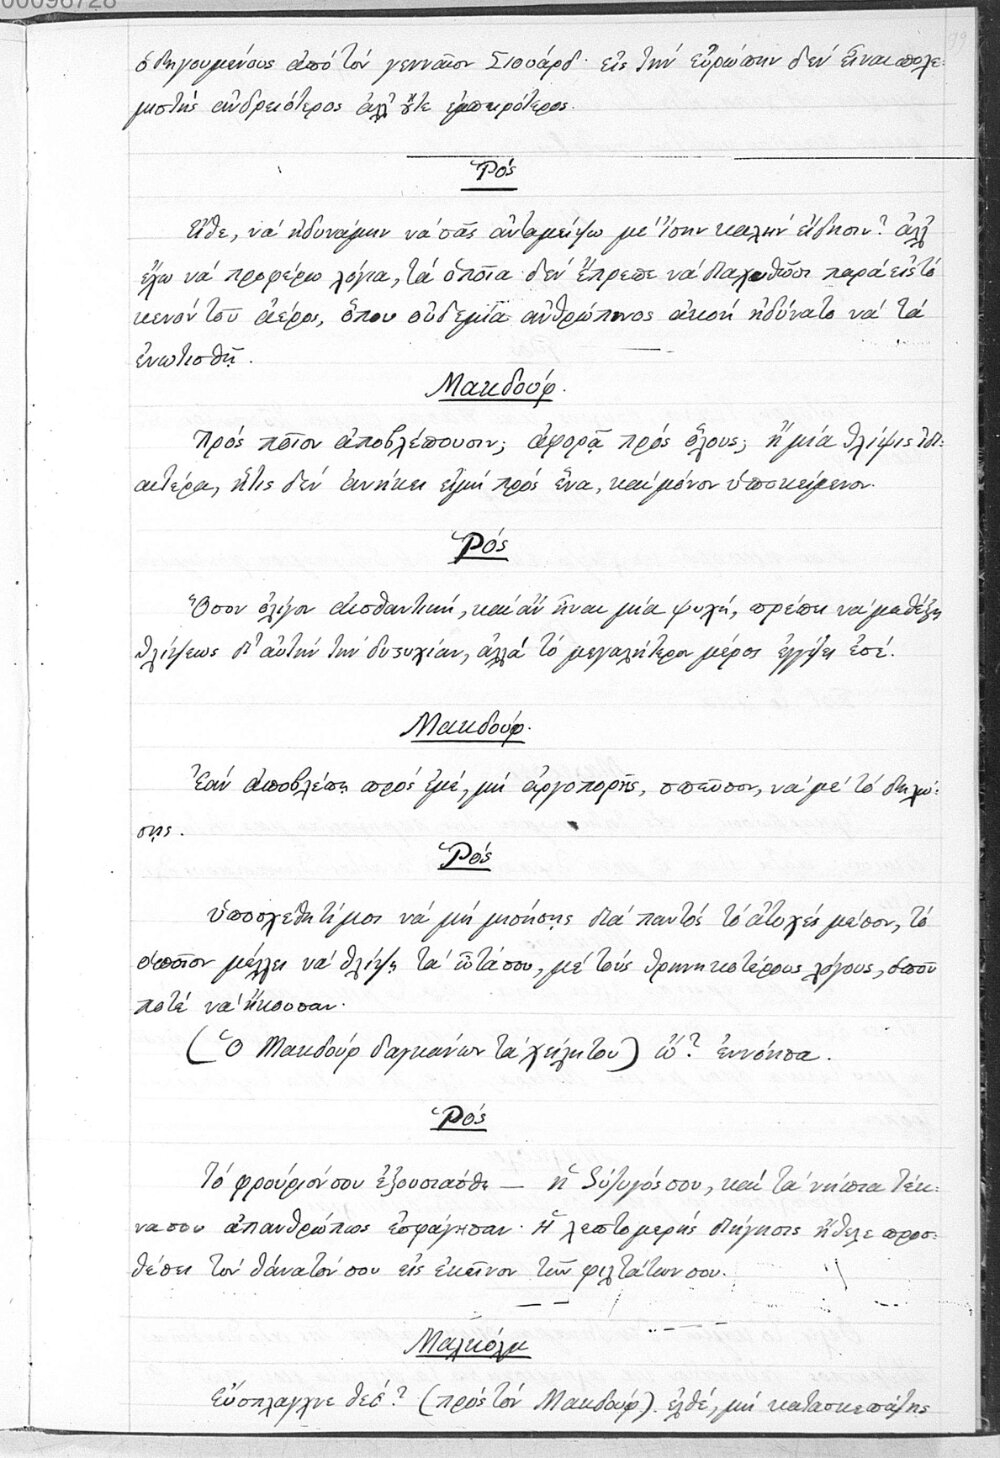 00096728
99
ὁδηγουμένους ἀπό τόν γενναῖον Σιουάρδ· εἰς τήν εὐρώπην δέν εἶναι πολε-
μιστής ἀνδρειότερος ἀλλ' οὔτε ἐμπειρότερος.
Ῥός
εἴθε, νά ἠδυνάμην νά σᾶς ἀνταμείψω μέ ἴσην καλήν εἴδησιν? ἀλλ'
ἔχω νά προφέρω λόγια, τά ὁποῖα δέν ἔπρεπε νά διαχυθῶσι παρά εἰς τό
κενόν τοῦ ἀέρος, ὅπου οὐδεμία ἀνθρώπινος ἀκοή ἠδύνατο νά τά
ἐνωτισθῇ.
Μακδούφ.
Πρός ποῖον ἀποβλέπουσιν; ἀφορᾷ πρός ὅλους; ἤ μία θλίψις ἰδι-
αιτέρα, ἥτις δέν ἀνήκει εἰμή πρός ἕνα, καί μόνον ὑποκείμενον.
Ῥός
Ὅσον ὀλίγον αἰσθαντική, καί ἄν ἦναι μία ψυχή, πρέπει νά μαθέξῃ
θλίψεως δι' αὐτήν τήν δυςυχίαν, ἀλλά τό μεγαλήτερον μέρος ἐγγίζει ἐσέ.
Μακδούφ.
Ἐάν ἀποβλέπῃ πρός ἐμέ, μή ἀργοπορῇς, σπεῦσον, νά μέ τό δηλώ-
σῃς.
Ῥός
ὑποσχέθητί μοι νά μή μισήσῃς διά παντός τό ἀτυχές μέσον, τό
ὁποῖον μέλλει νά θλίψῃ τά ὦτά σου, μέ τούς θρηνηκοτέρους λόγους, ὁποῦ
ποτέ νά ἤκουσαν.
(Ὁ Μακδούφ δαγκάνων τά χείλη του) ὤ? ἐννόησα.
Ῥός
Τό φρούριόν σου ἐξουσιάσθη — ἡ Σύζυγός σου, καί τά νήπια τέκ-
να σου ἀπανθρώπως ἐσφάγησαν· Ἡ λεπτομερής διήγησις ἤθελε προσ-
θέσει τόν θάνατόν σου εἰς ἐκεῖνον τῶν φιλτάτων σου.
Μαλκόλμ
Εὔσπλαγχνε θεέ? (πρός τόν Μακδούφ) ἐλθέ, μή κατασκεπάζῃς